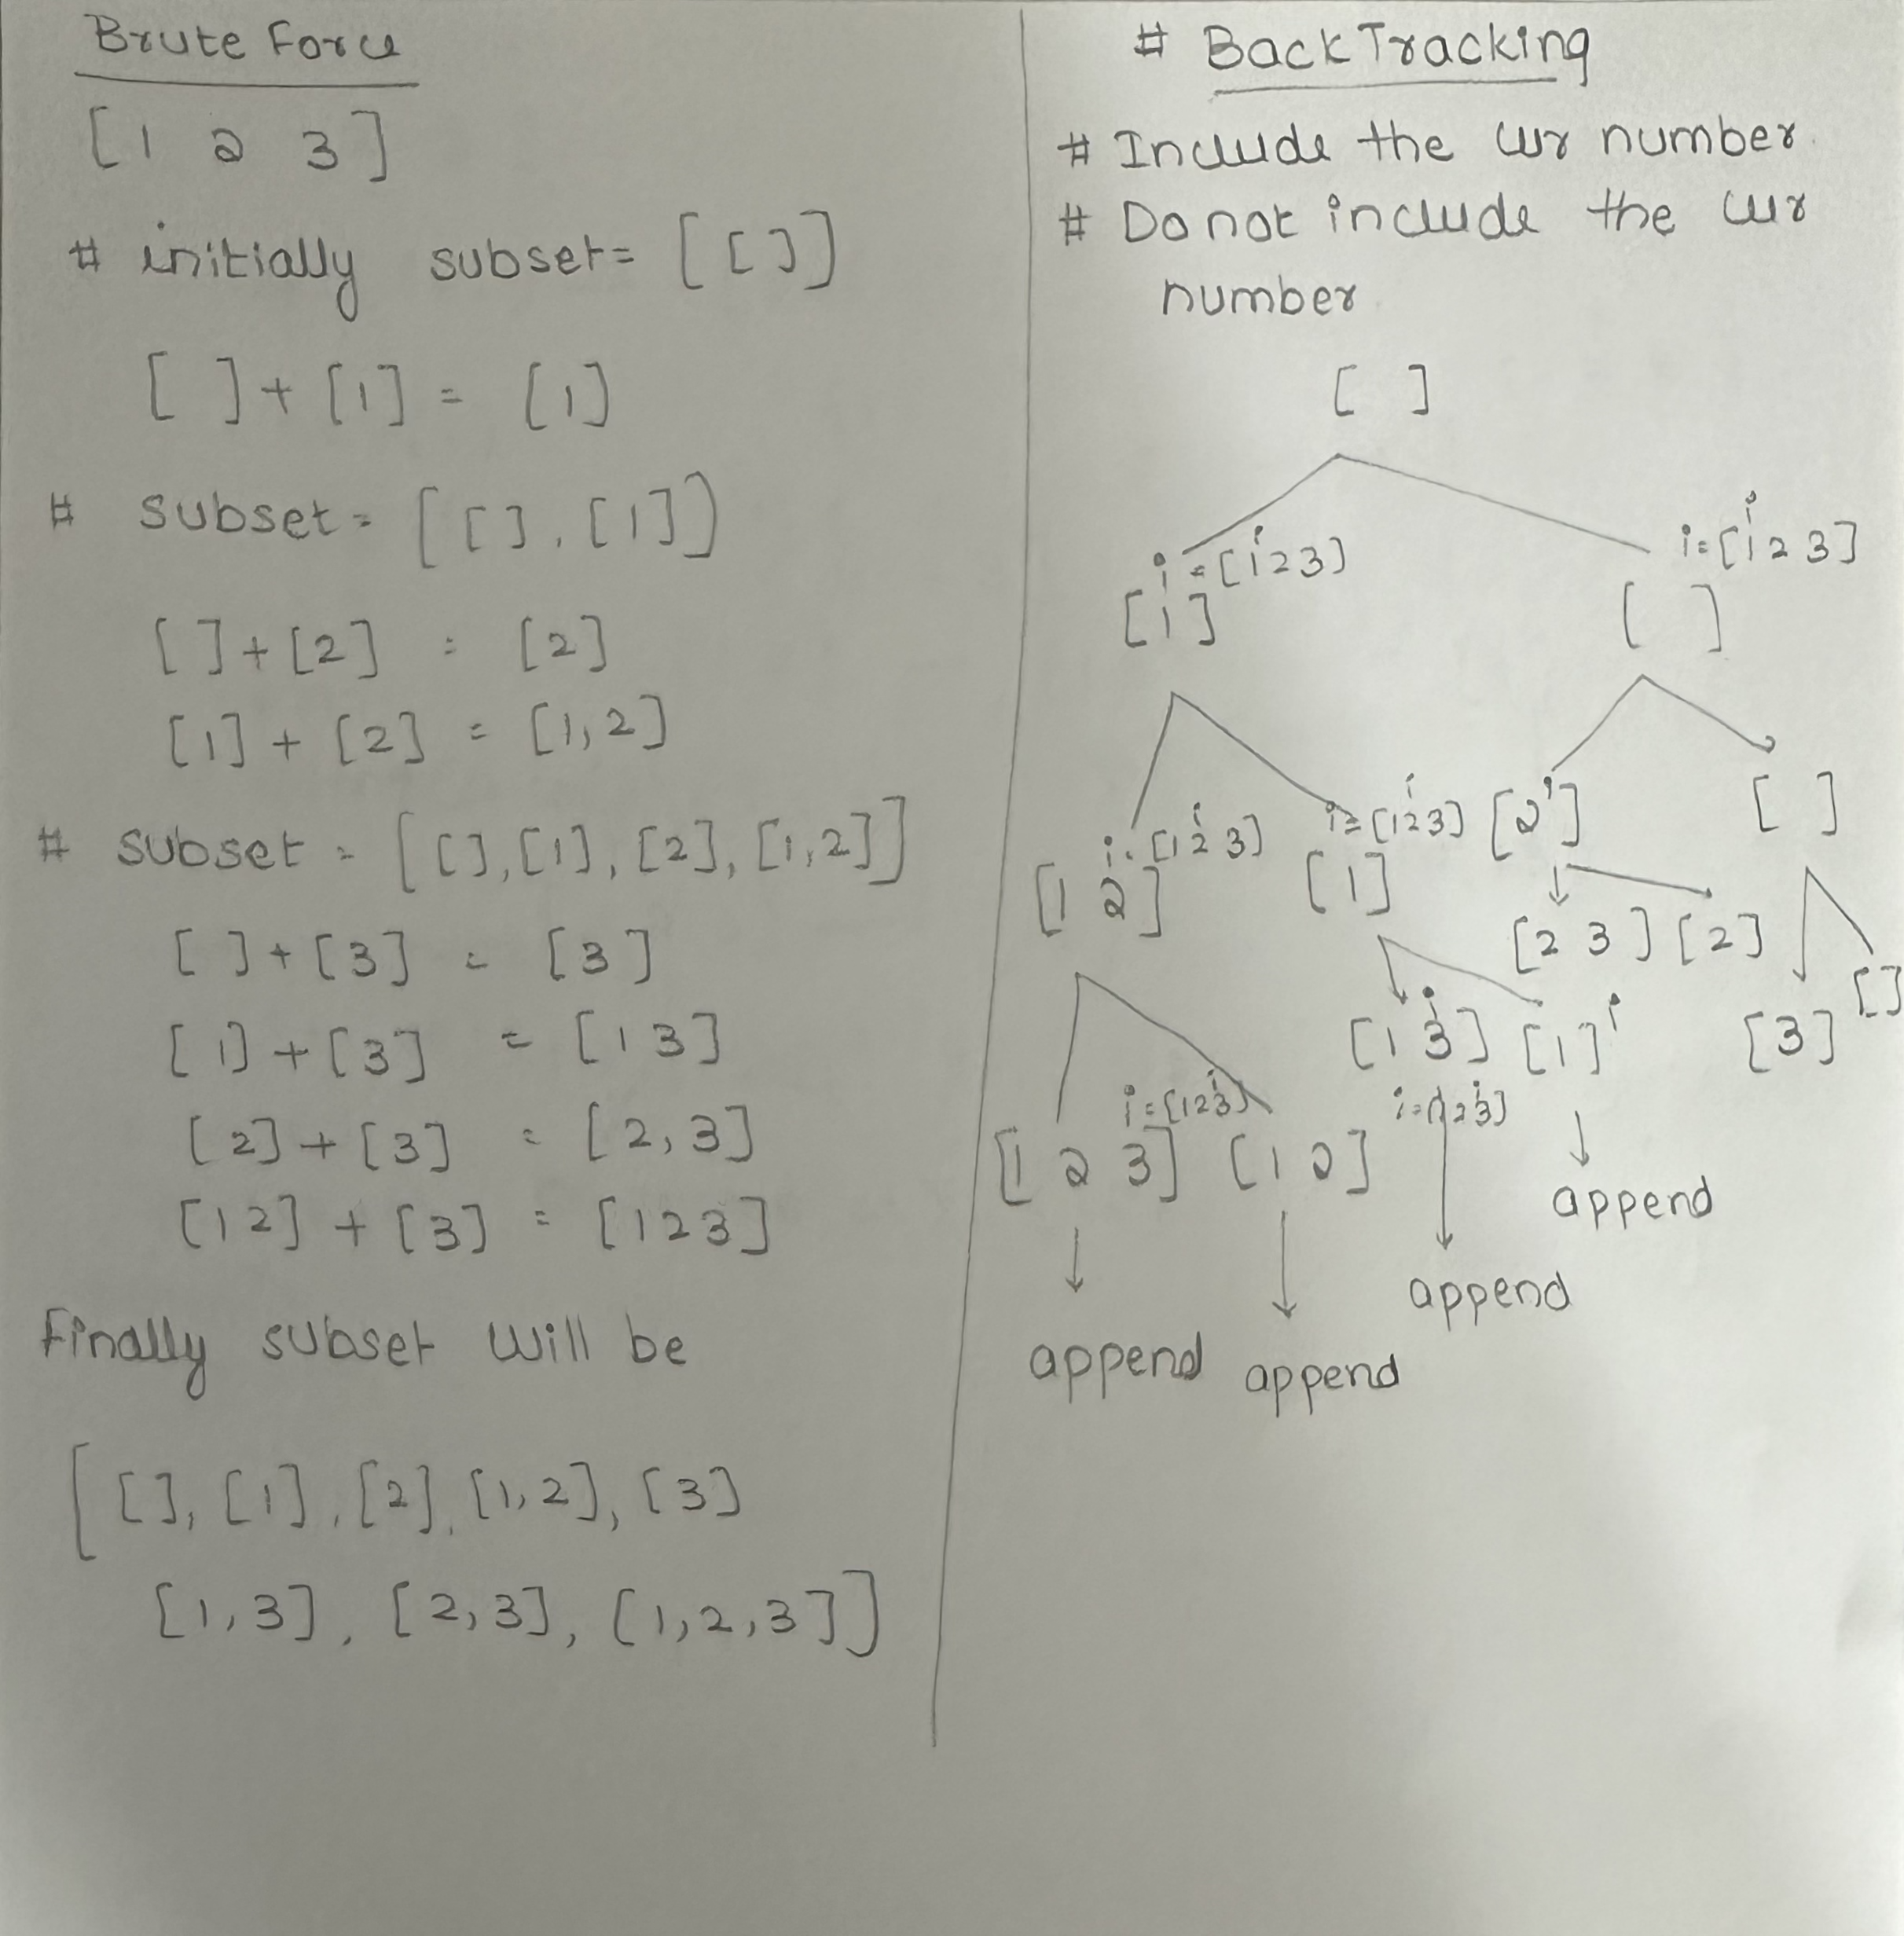 Brute Force
[1 2 3]
# initially subset= [[]]
[ ]+[1] = [1]
# subset= [[], [1]]
[ ]+[2] = [2]
[1] + [2] = [1,2]
# subset = [[], [1], [2], [1,2]]
[ ]+[3] = [3]
[1]+[3] = [1 3]
[2]+[3] = [2,3]
[1 2] + [3] = [1 2 3]
Finally subset will be
[[], [1], [2], [1,2], [3]
[1,3], [2,3], [1,2,3]]
# BackTracking
# Include the cur number
# Do not include the cur
number
[ ]
i=[1 2 3]
i
i=[1 2 3]
i
[1]
[ ]
i=[1 2 3]
i
i=[1 2 3]
i
[2]
i
[ ]
[1 2]
[1]
[2 3] [2]
[ ]
[1 3]
i
[1]
i
[3]
i=[1 2 3]
i
i=[1 2 3]
i
[1 2 3] [1 2]
append
append
append
append